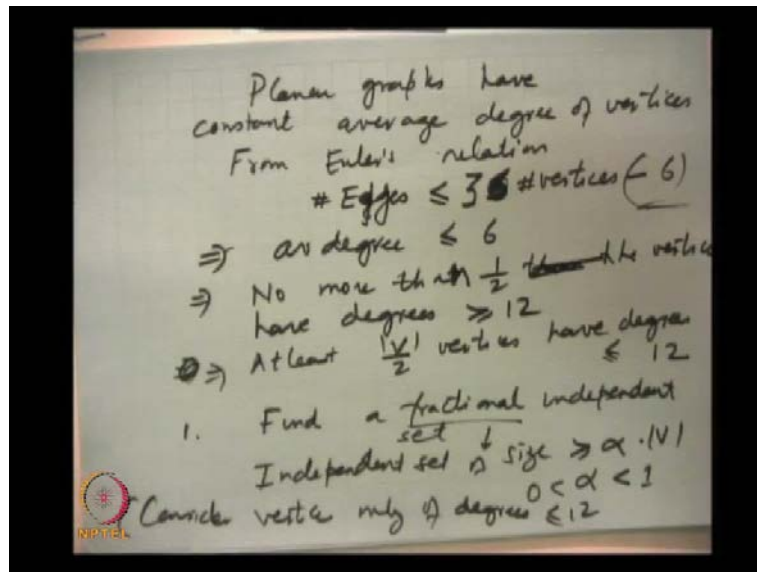 Planar graphs have
constant average degree of vertices
From Euler's relation
# Edges ≤ 3 # vertices (- 6)
⇒ av degree ≤ 6
⇒ No more than 1/2 the vertices
have degrees ≥ 12
⇒ Atleast |V|/2 vertices have degrees
≤ 12
1. Find a fractional independent
set ↓
Independent set of size ≥ α · |V|
0 < α < 1
Consider vertices only of degrees ≤ 12
NPTEL